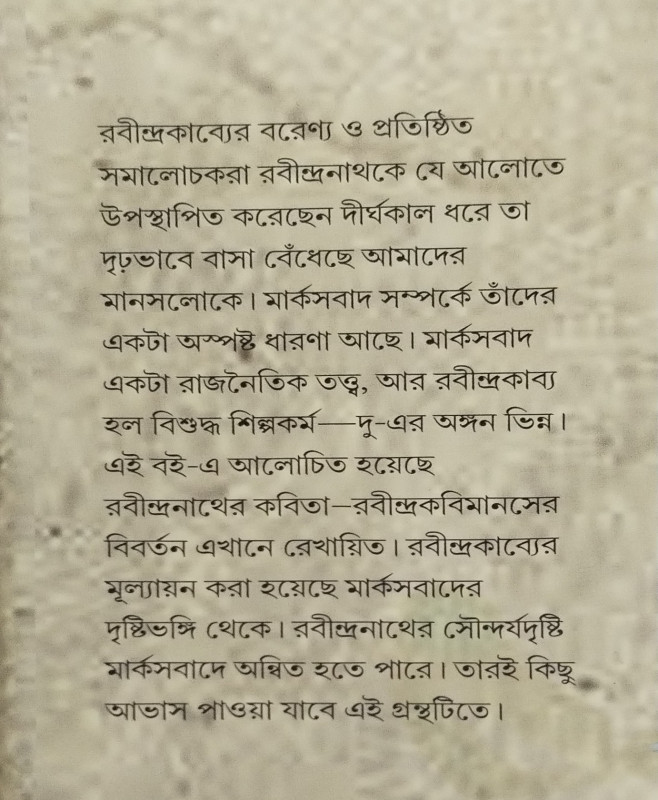 রবীন্দ্রকাব্যের বরেণ্য ও প্রতিষ্ঠিত
সমালোচকরা রবীন্দ্রনাথকে যে আলোতে
উপস্থাপিত করেছেন দীর্ঘকাল ধরে তা
দৃঢ়ভাবে বাসা বেঁধেছে আমাদের
মানসলোকে। মার্কসবাদ সম্পর্কে তাঁদের
একটা অস্পষ্ট ধারণা আছে। মার্কসবাদ
একটা রাজনৈতিক তত্ত্ব, আর রবীন্দ্রকাব্য
হল বিশুদ্ধ শিল্পকর্ম—দু-এর অঙ্গন ভিন্ন।
এই বই-এ আলোচিত হয়েছে
রবীন্দ্রনাথের কবিতা–রবীন্দ্রকবিমানসের
বিবর্তন এখানে রেখায়িত। রবীন্দ্রকাব্যের
মূল্যায়ন করা হয়েছে মার্কসবাদের
দৃষ্টিভঙ্গি থেকে। রবীন্দ্রনাথের সৌন্দর্যদৃষ্টি
মার্কসবাদে অন্বিত হতে পারে। তারই কিছু
আভাস পাওয়া যাবে এই গ্রন্থটিতে।